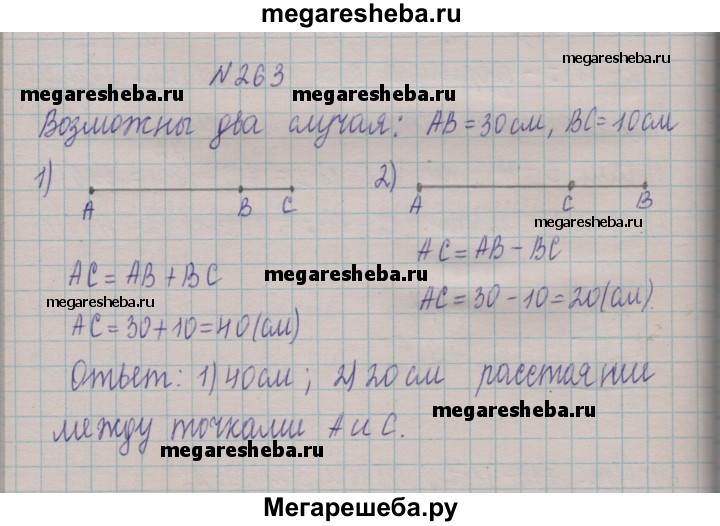 megaresheba.ru
megaresheba.ru
N263
megaresheba.ru megaresheba.ru
Возможны два случая: AB = 30 см, BC = 10 см
1) 2)
A B C A C B
megaresheba.ru
AC = AB - BC
AC = AB + BC megaresheba.ru
AC = 30 - 10 = 20 (см).
megaresheba.ru
AC = 30 + 10 = 40 (см)
Ответ: 1) 40 см; 2) 20 см расстояние
megaresheba.ru
между точками A и C.
megaresheba.ru
Мегарешеба.ру